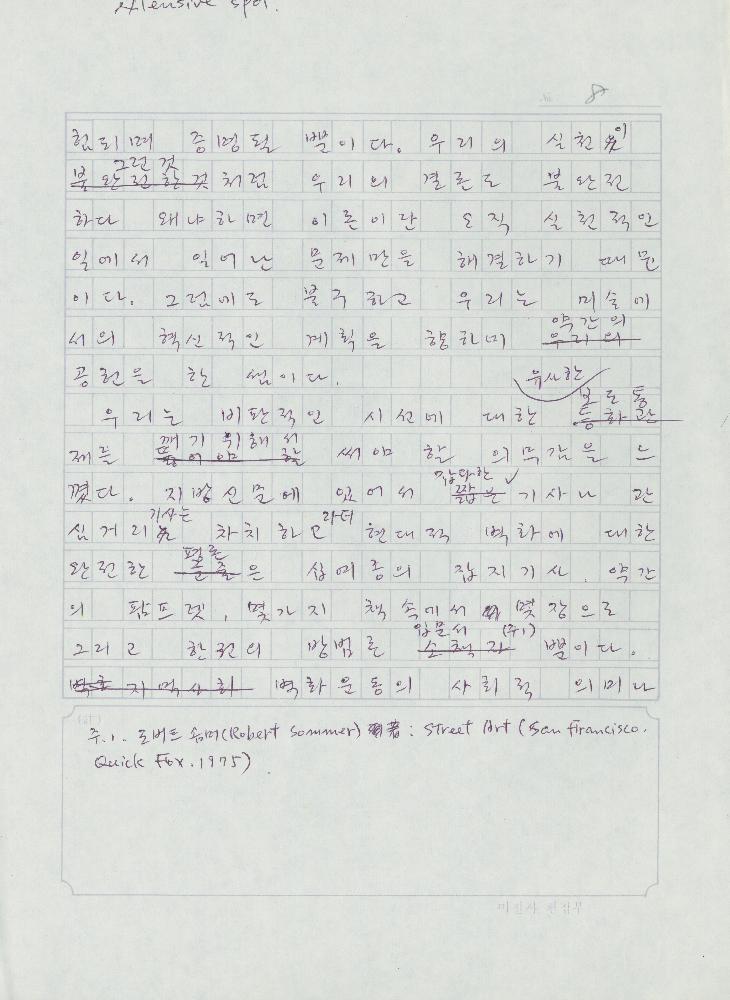 extensive spot.
8
험되며 증명될 뿐이다. 우리의 실천이
그런 것
불완전한 것처럼 우리의 결론도 불완전
하다 왜냐하면 이론이란 오직 실천적인
일에서 일어난 문제만을 해결하기 때문
이다. 그럼에도 불구하고 우리는 미술에
약간의
서의 혁신적인 계획을 행하며 우리의
공헌을 한 셈이다.
유사한
보도통
우리는 비판적인 시선에 대한 통화관
깨기 위해서
제를 써야 할 의무감을 느
잡다한
꼈다. 지방신문에 있어서 짧은 기사나 관
기사는 라더
심거리 차치하고 현대적 벽화에 대한
평론
완전한 은 십여종의 잡지기사, 약간
의 팜프렛, 몇가지 책속에서 몇장으로
입문서 (주1)
그리고 한권의 방법론 소책자 뿐이다.
벽화운동의 사회적 의미나
주.1. 로버트 솜머(Robert Sommer) 著: Street Art (San Francisco.
Quick Fox. 1975)
미진사 편집부